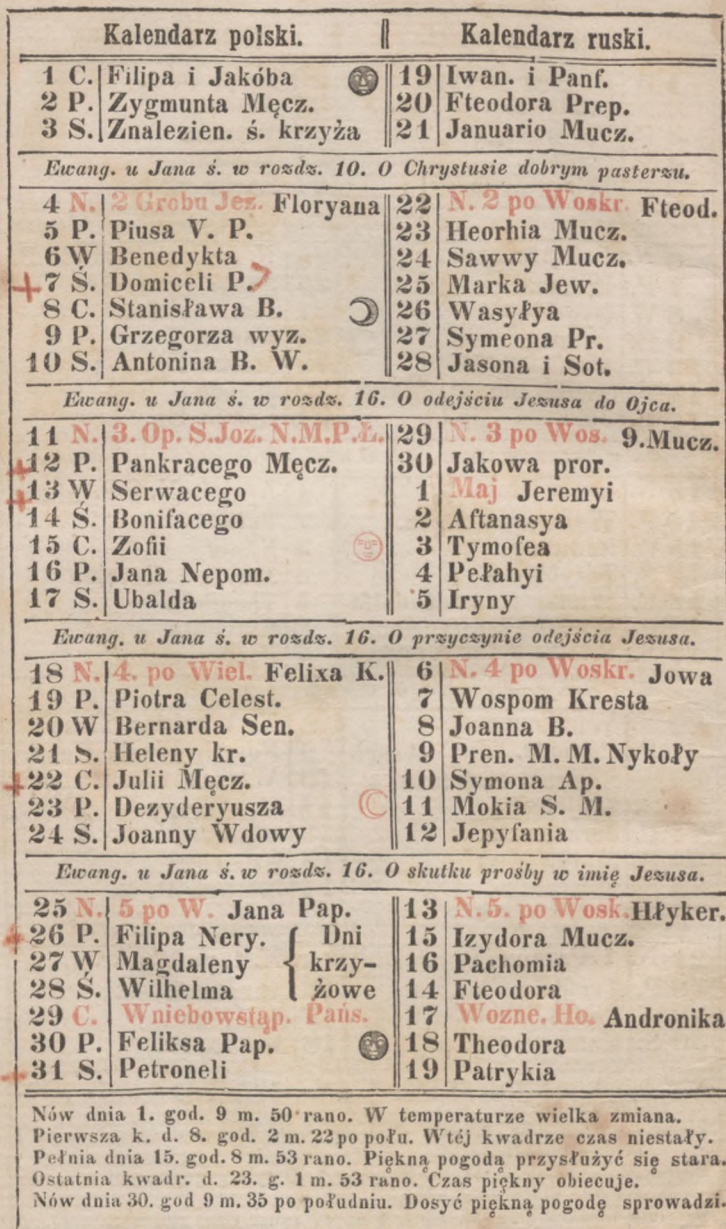 Kalendarz polski. || Kalendarz ruski.
1 C. Filipa i Jakóba 19 Iwan. i Panf.
2 P. Zygmunta Męcz. 20 Fteodora Prep.
3 S. Znalezien. ś. krzyża 21 Januario Mucz.
Ewang. u Jana ś. w rozdz. 10. O Chrystusie dobrym pasterzu.
4 N. 2 Grobu Jez. Floryana 22 N. 2 po Woskr. Fteod.
5 P. Piusa V. P. 23 Heorhia Mucz.
6 W Benedykta 24 Sawwy Mucz.
7 Ś. Domiceli P. 25 Marka Jew.
8 C. Stanisława B. 26 Wasyłya
9 P. Grzegorza wyz. 27 Symeona Pr.
10 S. Antonina B. W. 28 Jasona i Sot.
Ewang. u Jana ś. w rozdz. 16. O odejściu Jezusa do Ojca.
11 N. 3. Op. S. Joz. N.M.P.Ł. 29 N. 3 po Wos. 9. Mucz.
12 P. Pankracego Męcz. 30 Jakowa pror.
13 W Serwacego 1 Maj Jeremyi
14 Ś. Bonifacego 2 Aftanasya
15 C. Zofii 3 Tymofea
16 P. Jana Nepom. 4 Pełahyi
17 S. Ubalda 5 Iryny
Ewang. u Jana ś. w rozdz. 16. O przyczynie odejścia Jezusa.
18 N. 4. po Wiel. Felixa K. 6 N. 4 po Woskr. Jowa
19 P. Piotra Celest. 7 Wospom Kresta
20 W Bernarda Sen. 8 Joanna B.
21 S. Heleny kr. 9 Pren. M. M. Nykoły
22 C. Julii Męcz. 10 Symona Ap.
23 P. Dezyderyusza 11 Mokia S. M.
24 S. Joanny Wdowy 12 Jepyfania
Ewang. u Jana ś. w rozdz. 16. O skutku prośby w imię Jezusa.
25 N. 5 po W. Jana Pap. 13 N. 5. po Wosk. Hłyker.
26 P. Filipa Nery. { Dni 15 Izydora Mucz.
27 W Magdaleny krzy- 16 Pachomia
28 Ś. Wilhelma żowe 14 Fteodora
29 C. Wniebowstąp. Pańs. 17 Wozne. Ho. Andronika
30 P. Feliksa Pap. 18 Theodora
31 S. Petroneli 19 Patrykia
Nów dnia 1. god. 9 m. 50 rano. W temperaturze wielka zmiana.
Pierwsza k. d. 8. god. 2 m. 22 po połu. Wtéj kwadrze czas niestały.
Pełnia dnia 15. god. 8 m. 53 rano. Piękną pogodą przysłużyć się stara.
Ostatnia kwadr. d. 23. g. 1 m. 53 rano. Czas piękny obiecuje.
Nów dnia 30. god 9 m. 35 po południu. Dosyć piękną pogodę sprowadzi.